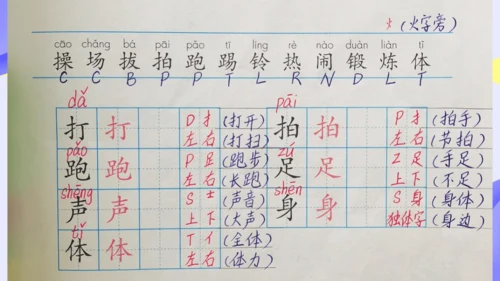 火(火字旁)
cāo chǎng bá pāi pǎo tī líng rè nào duàn liàn tǐ
操 场 拔 拍 跑 踢 铃 热 闹 锻 炼 体
C C B P P T L R N D L T
dǎ pāi
打 打 D 扌 (打开) 拍 拍 P 扌 (拍手)
左右 (打扫) 左右 (节拍)
pǎo zú
跑 跑 P 𧾷 (跑步) 足 足 Z 足 (手足)
左右 (长跑) 上下 (不足)
shēng shēn
声 声 S 士 (声音) 身 身 S 身 (身体)
上下 (大声) 独体字 (身边)
tǐ
体 体 T 亻 (全体)
左右 (体力)